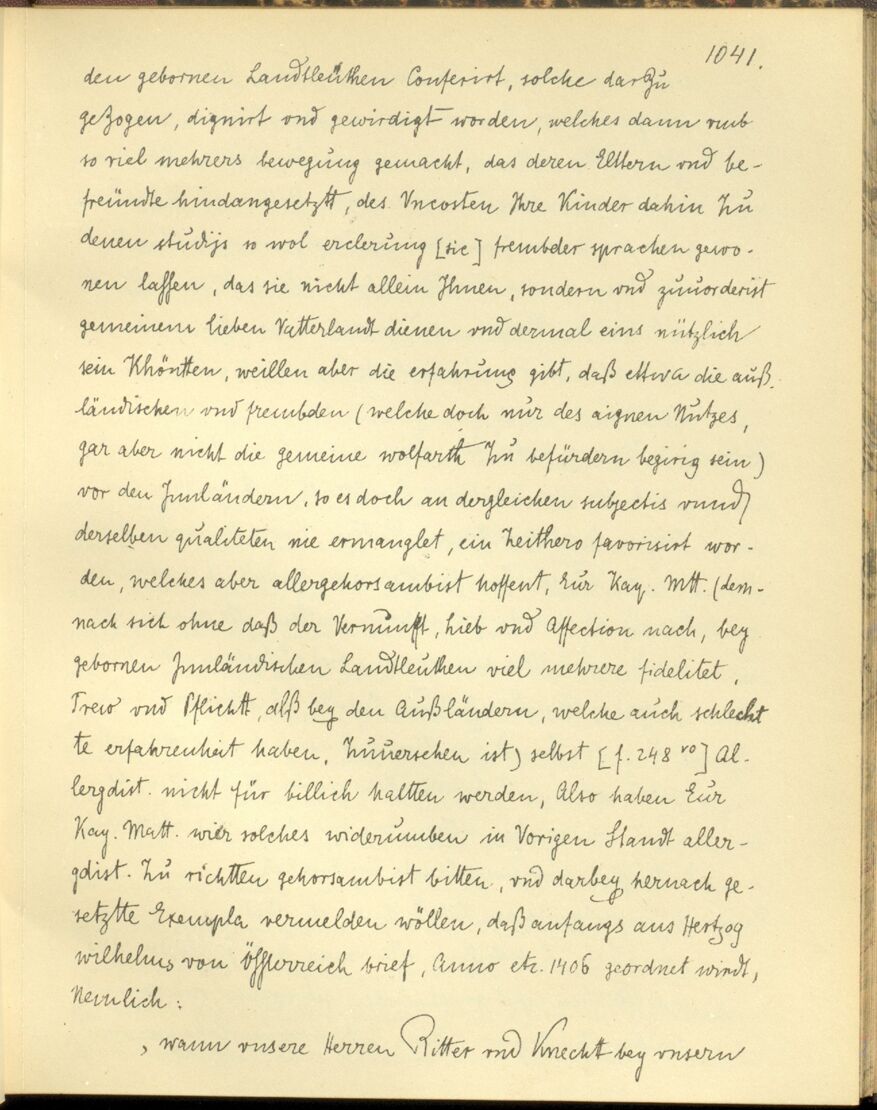 1041.
den gebornen Landtleüthen Conferirt, solche darZu
geZogen, dignirt vnd gewirdigt worden, welches dann vmb
so viel mehrers bewegung gemacht, das deren Elttern vnd be-
freündte hindangesetztt, des Vncosten Ihre Kinder dahin Zu
denen studijs so wol erclerung [sic] frembder sprachen gewo-
nen lassen, das sie nicht allein Ihnen, sondern vnd zuuorderist
gemeinem lieben Vatterlandt dienen vnd dermal eins nützlich
sein Khöntten, weillen aber die erfahrung gibt, daß ettwa die auß-
ländischen vnd frembden (welche doch nur des aignen Nutzes,
gar aber nicht die gemeine wolfarth Zu befürdern begirig sein)
vor den Innländern, so es doch an dergleichen subjectis vnnd
derselben qualiteten nie ermanglet, ein Zeithero favorisirt wor-
den, welches aber allergehorsambist hoffent, Eur Kay. Mtt. (dem-
nach sich ohne daß der Vernunfft, hieb vnd Affection nach, bey
gebornen Innländischen Landtleuthen viel mehrere fidelitet,
Trew vnd Pflichtt, alß bey den Außländern, welche auch schlecht
te erfahrenheit haben, Zuuersehen ist) selbst [f. 248 vo] Al-
lergdist. nicht für billich haltten werden, Also haben Eur
Kay. Matt. wier solches widerumben in Vorigen Standt aller-
gdist. Zu richtten gehorsambist bitten, vnd darbey hernach ge-
setztte Exempla vermelden wöllen, daß anfangs aus Hertzog
wilhelms von Össterreich brief, Anno etc. 1406 geordnet wirdt,
Nemlich:
, wann vnsere Herren Ritter vnd Knechtt bey vnsern